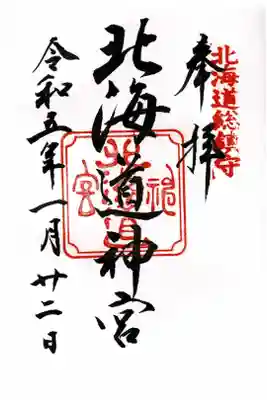 北海道総鎮守
奉拝
北海道神宮
令和五年一月廿二日